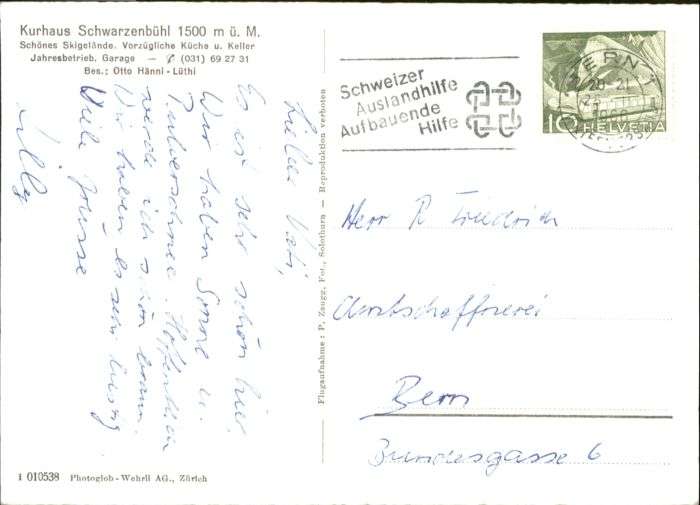 Kurhaus Schwarzenbühl 1500 m ü. M.
Schönes Skigelände. Vorzügliche Küche u. Keller
Jahresbetrieb. Garage – (031) 69 27 31
Bes.: Otto Hänni-Lüthi
Lieber Vati,
Es ist sehr schön hier.
Wir haben Sonne u.
Pulverschnee. Hoffentlich
werde ich schön braun.
Wir haben es sehr lustig
Viele Grüsse
Flugaufnahme: P. Zaugg, Fot., Solothurn – Reproduktion verboten
Schweizer
Auslandhilfe
Aufbauende
Hilfe
BERN 1
20-21
10 HELVETIA
Herr R Friedrich
Amtschaffnerei
Bern
Bundesgasse 6
1 010538 Photoglob-Wehrli AG., Zürich